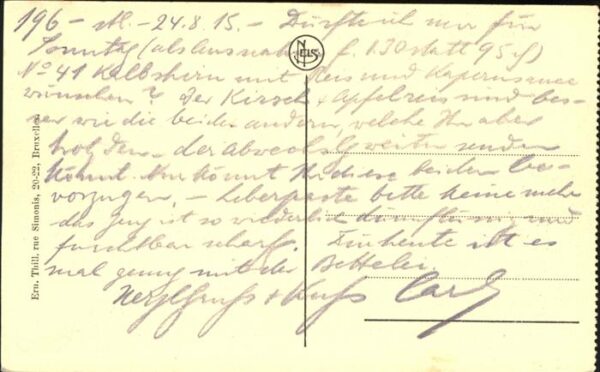 196 – M. – 24.8.15. – Dürfte ich nur für
Sonntag (als Ausnahme f. 1.30 statt 95 )
No 41 Kalbshirn mit Reis und Kapernsauce
wünschen? Der Kirsch & Apfelreis sind bes-
ser wie die beiden andern, welche Ihr aber
trotzdem der Abwechslg weiter senden
könnt. Ihr könnt diese beiden be-
vorzugen, – Leberpaste bitte keine mehr
das Zeug ist so wiederlich und
furchtbar scharf. Für heute ist es
mal genug mit der Bettelei.
Herzl Gruss & Kuss Carl
NELS
Ern. Thill, rue Simonis, 20-22, Bruxelles